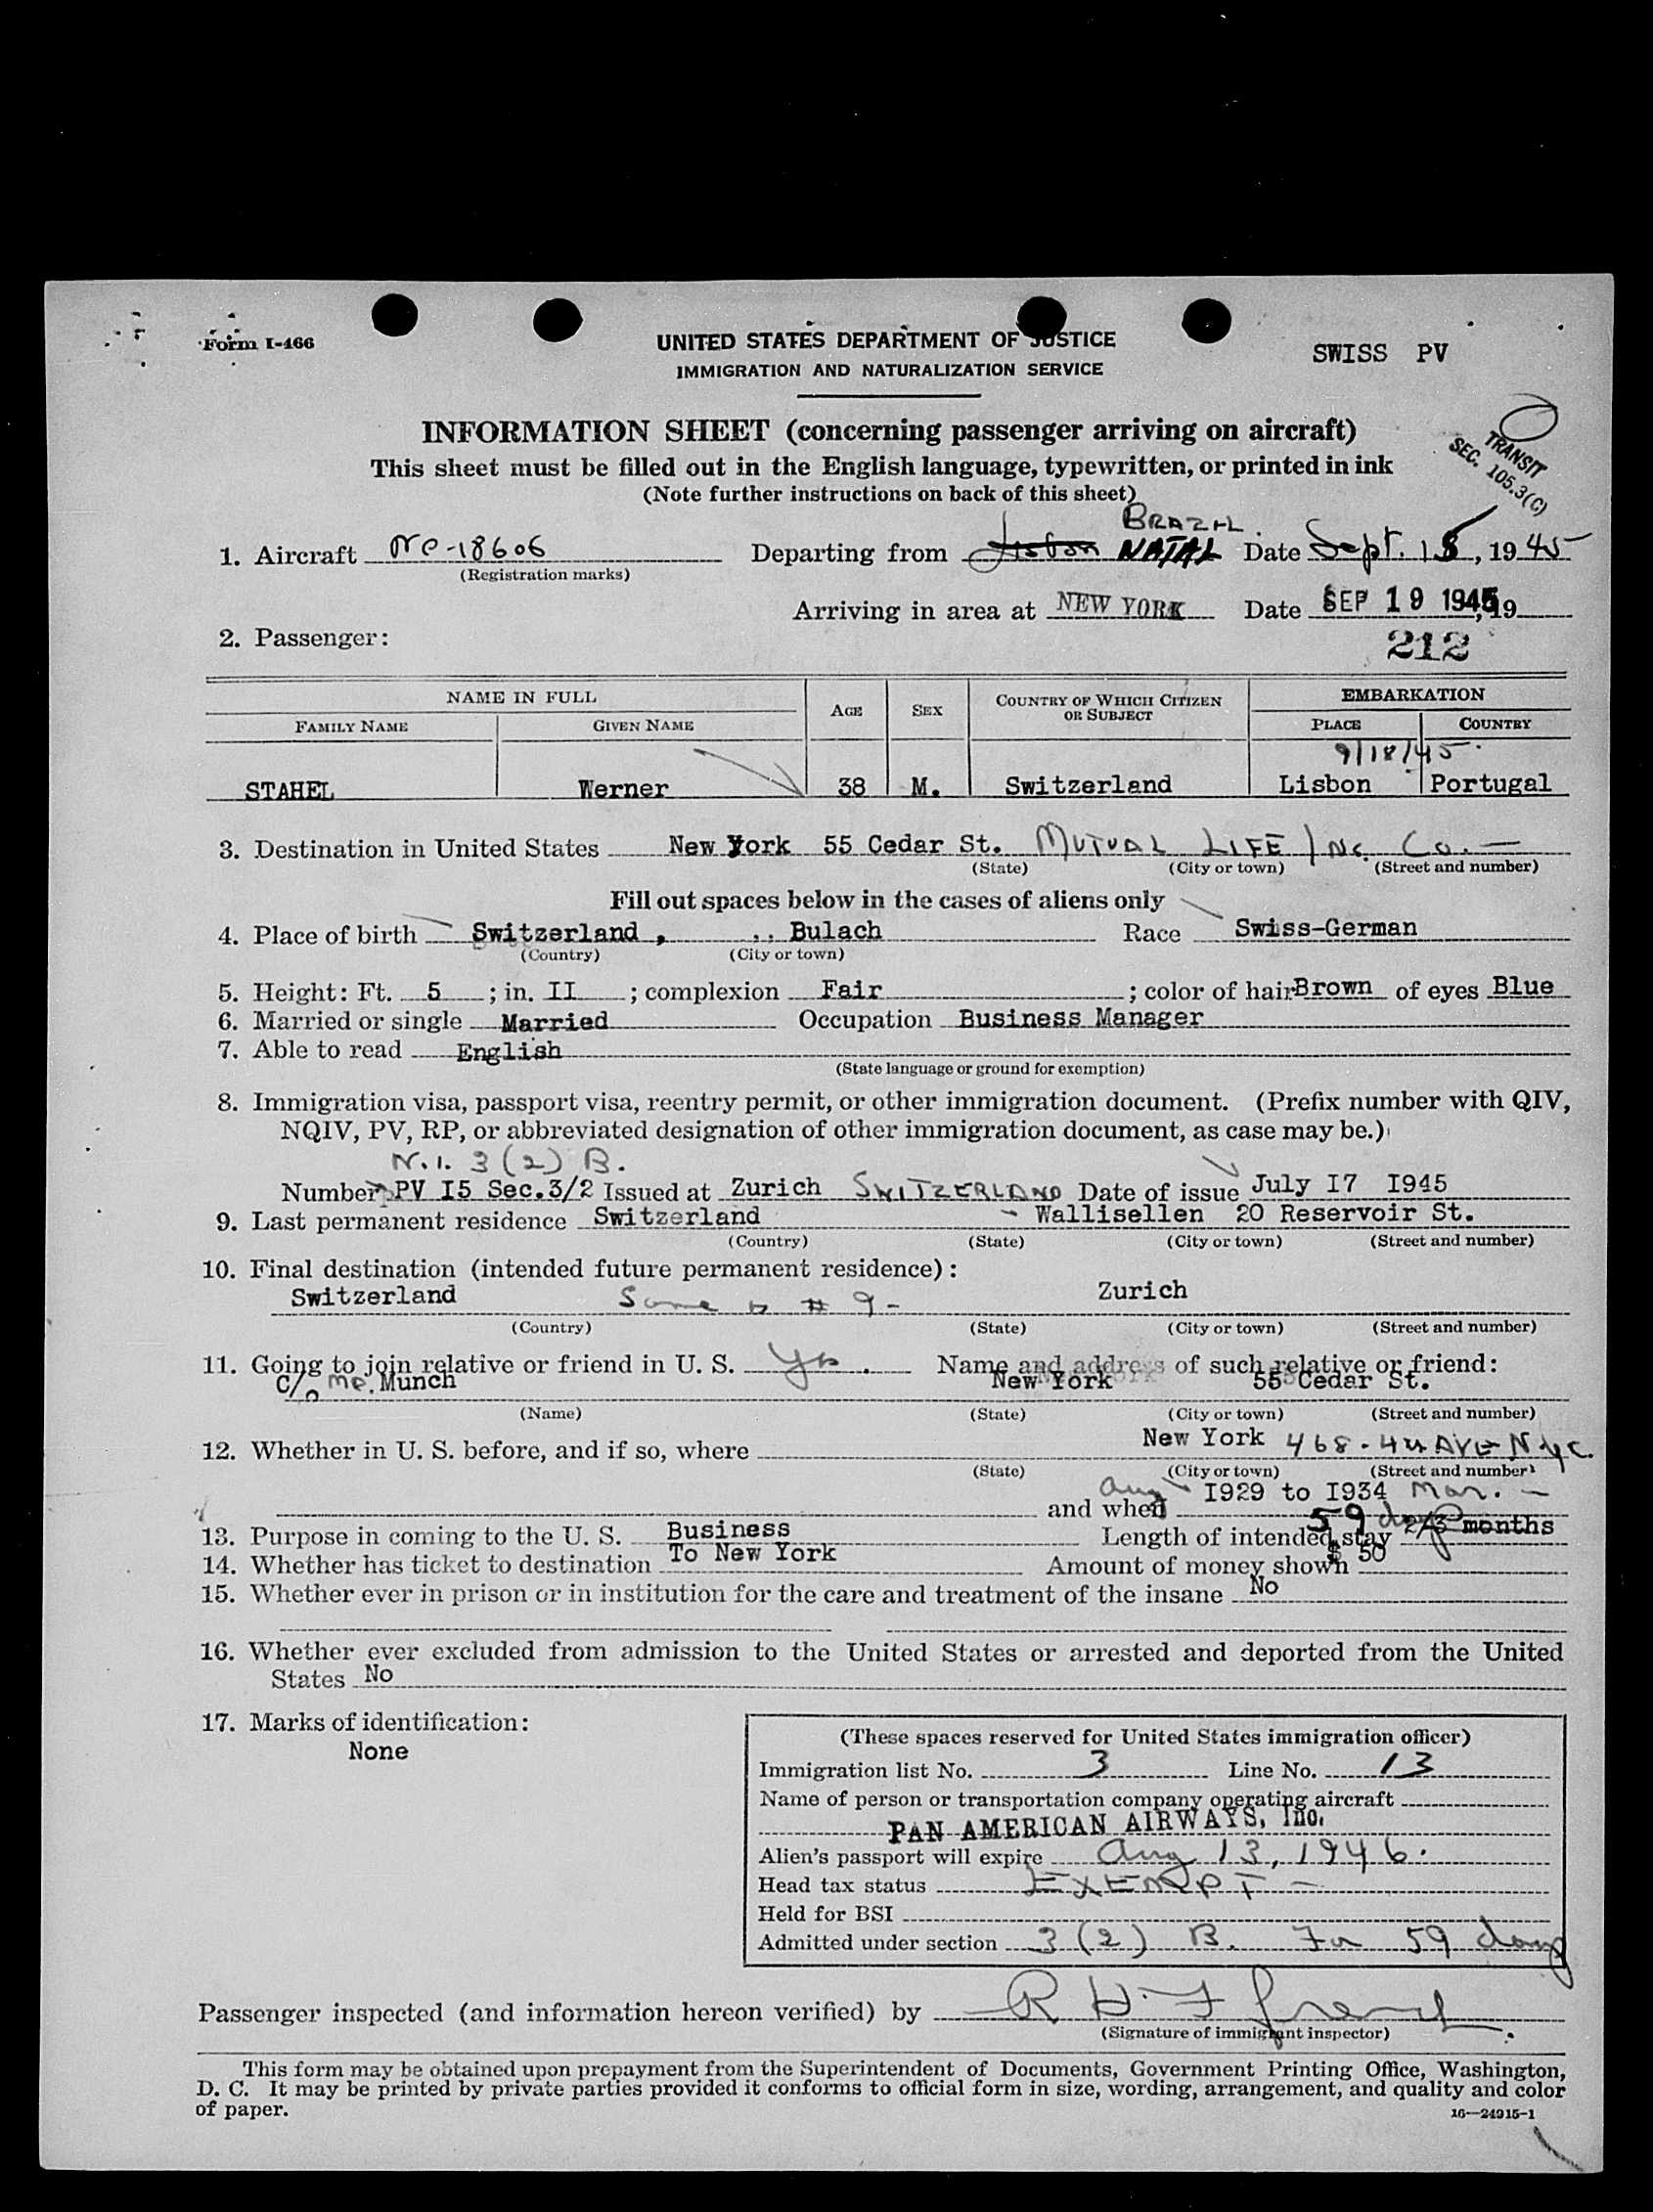 Form I-466
UNITED STATES DEPARTMENT OF JUSTICE
IMMIGRATION AND NATURALIZATION SERVICE
SWISS PV
INFORMATION SHEET (concerning passenger arriving on aircraft)
This sheet must be filled out in the English language, typewritten, or printed in ink
(Note further instructions on back of this sheet)
TRANSIT
SEC. 105.3(C)
BRAZIL
1. Aircraft NC-18606 Departing from Lisbon NATAL Date Sept. 18, 1945
(Registration marks)
Arriving in area at NEW YORK Date SEP 19 1945, 19
2. Passenger:
212
NAME IN FULL AGE SEX COUNTRY OF WHICH CITIZEN OR SUBJECT EMBARKATION
FAMILY NAME GIVEN NAME PLACE COUNTRY
9/18/45
STAHEL Werner 38 M. Switzerland Lisbon Portugal
3. Destination in United States New York 55 Cedar St. MUTUAL LIFE INC. Co.
(State) (City or town) (Street and number)
Fill out spaces below in the cases of aliens only
4. Place of birth Switzerland, Bulach Race Swiss-German
(Country) (City or town)
5. Height: Ft. 5; in. II; complexion Fair; color of hair Brown of eyes Blue
6. Married or single Married Occupation Business Manager
7. Able to read English
(State language or ground for exemption)
8. Immigration visa, passport visa, reentry permit, or other immigration document. (Prefix number with QIV,
NQIV, PV, RP, or abbreviated designation of other immigration document, as case may be.)
N.I. 3 (2) B.
Number PV I5 Sec.3/2 Issued at Zurich SWITZERLAND Date of issue July I7 I945
9. Last permanent residence Switzerland - Wallisellen 20 Reservoir St.
(Country) (State) (City or town) (Street and number)
10. Final destination (intended future permanent residence):
Switzerland Same as # 9 - Zurich
(Country) (State) (City or town) (Street and number)
11. Going to join relative or friend in U. S. Yes. Name and address of such relative or friend:
C/o Mr. Munch New York 55 Cedar St.
(Name) (State) (City or town) (Street and number)
12. Whether in U. S. before, and if so, where New York 468 - 4th AVE NYC.
(State) (City or town) (Street and number)
and when Aug I929 to I934 Mar. -
13. Purpose in coming to the U. S. Business Length of intended stay 59 days 2/3 months
14. Whether has ticket to destination To New York Amount of money shown $ 50
15. Whether ever in prison or in institution for the care and treatment of the insane No
16. Whether ever excluded from admission to the United States or arrested and deported from the United
States No
17. Marks of identification:
None
(These spaces reserved for United States immigration officer)
Immigration list No. 3 Line No. 13
Name of person or transportation company operating aircraft
PAN AMERICAN AIRWAYS, Inc.
Alien's passport will expire Aug 13, 1946.
Head tax status EXEMPT -
Held for BSI
Admitted under section 3 (2) B. For 59 days
Passenger inspected (and information hereon verified) by
(Signature of immigrant inspector)
This form may be obtained upon prepayment from the Superintendent of Documents, Government Printing Office, Washington,
D. C. It may be printed by private parties provided it conforms to official form in size, wording, arrangement, and quality and color
of paper.
16—24915-1